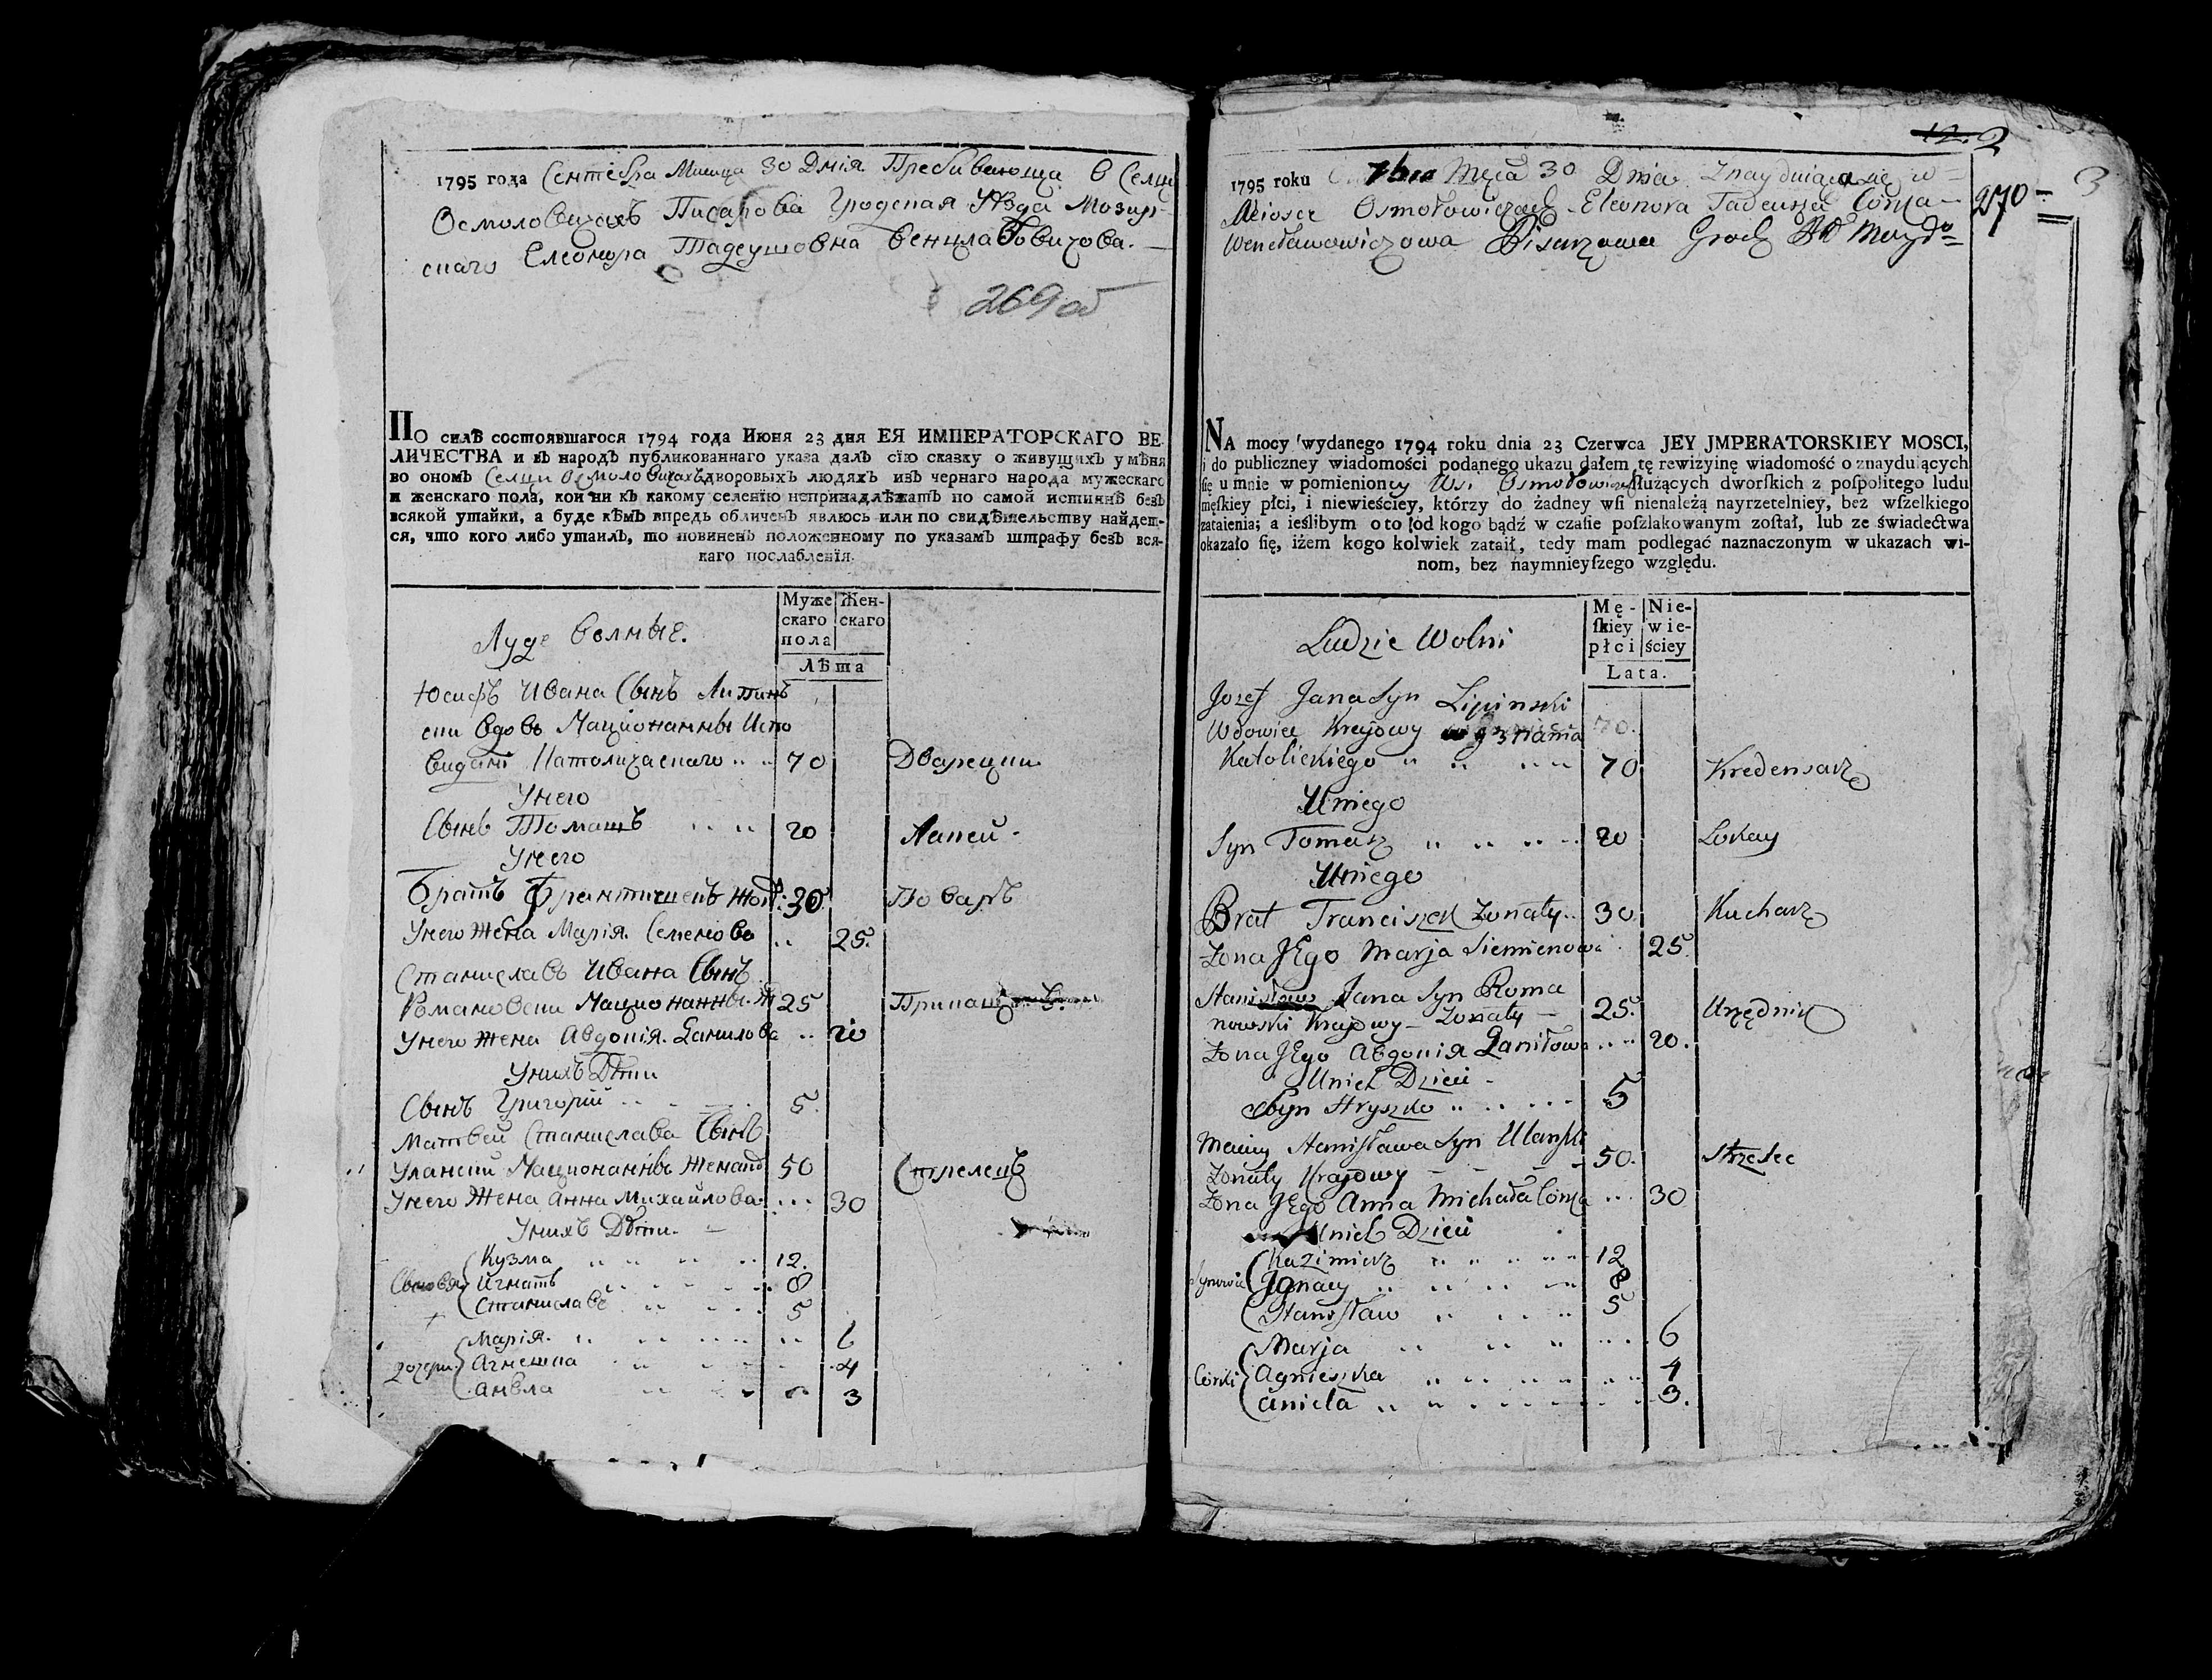 1795 года Сентебра Мисица 30 Днiя Пребивающа в Селци
Осмоловичахъ Писарова Гродская Уѣзда Мозир-
скаго Елеонора Тадеушовна Венцлавовичова.
269 об
ПО силѣ состоявшагося 1794 года Июня 23 дня ЕЯ ИМПЕРАТОРСКАГО ВЕ-
ЛИЧЕСТВА и въ народъ публикованнаго указа далъ сїю сказку о живущихъ у мѣня
во ономъ Селци Осмоловичахъ дворовыхъ людяхъ изъ чернаго народа мужескаго
и женскаго пола, кои ни къ какому селенїю непринадлѣжатъ по самой истиннѣ безъ
всякой утайки, а буде кѣмъ впредь обличенъ явлюсь или по свидѣтельству найдет-
ся, что кого либо утаилъ, то повиненъ положенному по указамъ штрафу безъ вся-
каго послабленїя.
Муже Жен-
скаго скаго
пола
Лѣта
Луде Волные.
Юсифъ Ивана Сынъ Липинъ
ски вдовъ Нацiонанны Испо
виданi Католицкаго 70 Дворецки
Унего
Сынъ Томашъ 20 Лакей
Унего
Братъ Франтишекъ 30 Поваръ
Унего Жена Марiя Семенова 25.
Станиславъ Ивана Сынъ
Романовски Нацiонанны Ж 25
Унего Жена Авдокiя Данилова 20
Унихъ Дѣти
Сынъ Григорiй 5.
Матвей Станислава Сынъ
Улански Нацiонанны Женатъ 50 Стрелецъ
Унего Жена Анна Михайлова 30
Унихъ Дѣти.
Кузма 12.
Сыновя Игнатъ 8
Станиславъ 5
Марiя. 6
дочери Агнешка 4
Анѣла 3
12. 2
3
270
1795 roku 7bra Męca 30 Dnia Znayduiąca się w
Mieysce Osmołowiczach Eleonora Tadeusza Corka
Wencławowiczowa Pisarzowa Grodz
NA mocy wydanego 1794 roku dnia 23 Czerwca JEY JMPERATORSKIEY MOSCI,
i do publiczney wiadomości podanego ukazu dałem tę rewizyinę wiadomość o znayduiących
się u mnie w pomienioney Wsi Osmołowiczach służących dworſkich z poſpolitego ludu
męſkiey płci, i niewieściey, którzy do żadney wſi nienależą nayrzetelniey, bez wſzelkiego
zataienia; a ieślibym o to od kogo bądź w czaſie poſzlakowanym zoſtał, lub ze świadectwa
okazało ſię, iżem kogo kolwiek zataił, tedy mam podlegać naznaczonym w ukazach wi-
nom, bez naymnieyſzego względu.
Mę- Nie-
ſkiey wie-
płci ściey
Lata.
Ludzie Wolni
Jozef Jana Syn Lipinski
Wdowiec Krajowy wyznania 70.
Katolickiego 70 Kredensarz
Uniego
Syn Tomasz 20 Lokay
Uniego
Brat Franciszek Zonaty 30 Kucharz
Zona JEgo Marja Siemienowa 25.
Stanisław Jana Syn Roma
nowski Krajowy Zonaty 25. Urzędnik
Zona JEgo Авдокiя Daniłowa 20.
Unich Dzieci
Syn Hryszko 5
Maciey Stanisława Syn Ulanski
Zonaty Krajowy 50. Strzelec
Zona JEgo Anna Michała Corka 30
Unich Dzieci
Kazimierz 12
Synowie Jgnacy 8
Stanisław 5
Marja 6
Córki Agnieszka 4
Aniela 3.